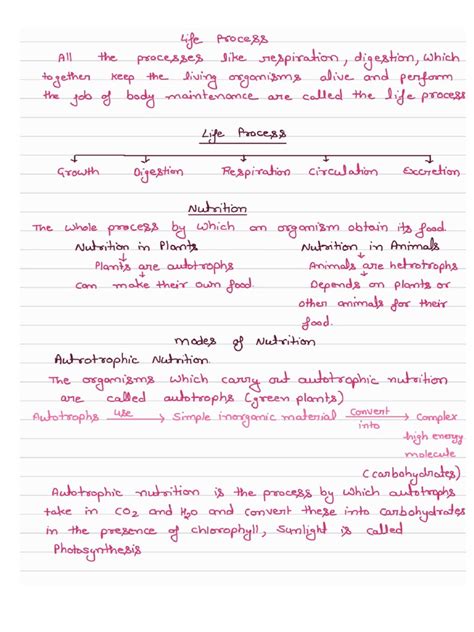 Life Process
All the processes like respiration, digestion, which
together keep the living organisms alive and perform
the job of body maintenance are called the life process
Life Process
Growth Digestion Respiration Circulation Excretion
Nutrition
The whole process by which an organism obtain its food.
Nutrition in Plants Nutrition in Animals
Plants are autotrophs Animals are hetrotrophs
can make their own food. Depends on plants or
other animals for their
food.
modes of Nutrition
Autrotrophic Nutrition
The organisms which carry out autotrophic nutrition
are called autotrophs (green plants)
Autotrophs use → Simple inorganic material convert into → Complex
high energy
molecule
(carbohydrates)
Autotrophic nutrition is the process by which autotrophs
take in CO2 and H2O and convert these into carbohydrates
in the presence of chlorophyll, Sunlight is called
Photosynthesis